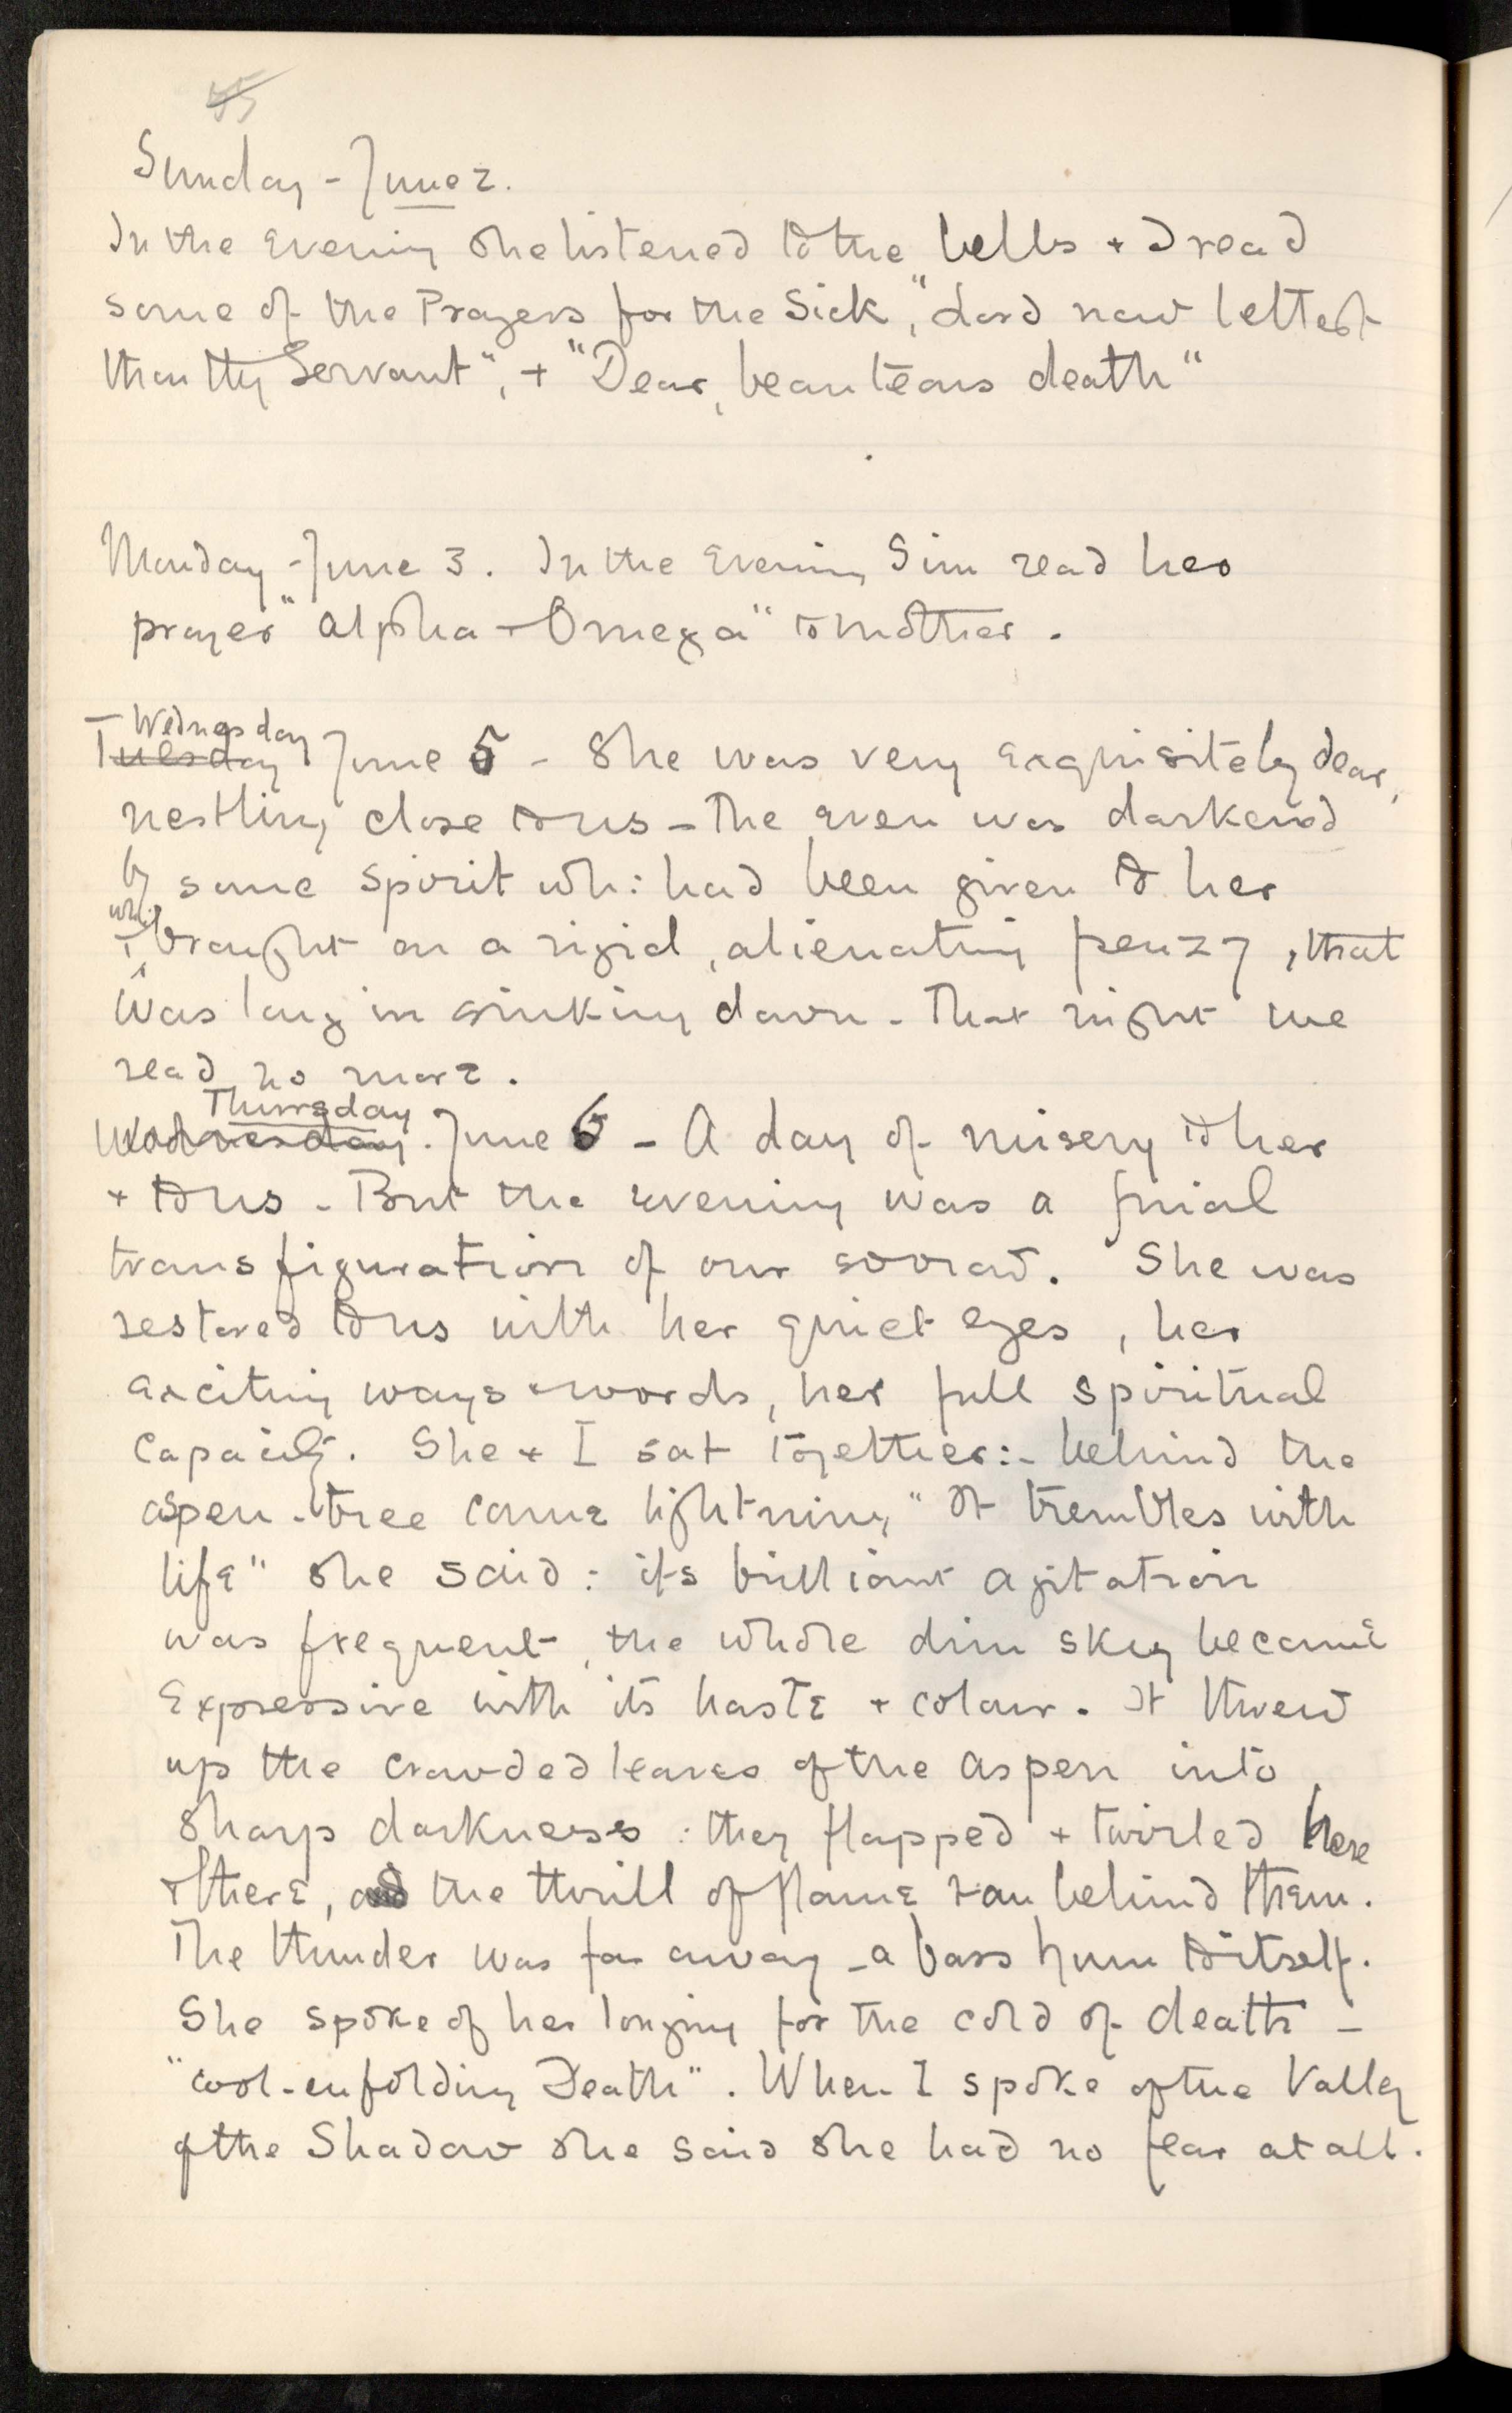 Sunday - June 2.
In the evening she listened to the bells + I read
some of the Prayers for the Sick, "Lord now lettest
thou thy Servant", + "Dear, beauteous death"
Monday - June 3. In the evening Sim read her
prayer "Alpha + Omega" to mother.
Wednesday
Tuesday June 5 - She was very exquisitely dear,
nestling close to us - The even was darkened
by some spirit wh: had been given to her
wh:
+ brought on a rigid, alienating frenzy, that
was long in sinking down. That night we
read no more.
Thursday
Wednesday. June 6 - A day of misery to her
+ to us - But the evening was a final
transfiguration of our sorrow. She was
restored to us with her quiet eyes, her
exciting ways + words, her full spiritual
capacity. She + I sat together:- behind the
aspen-tree came lightning "It trembles with
life" she said: its brilliant agitation
was frequent, the whole dim sky became
expressive with its haste + colour. It threw
up the crowded leaves of the aspen into
sharp darkness: they flapped + twirled here
+ there, and the thrill of flame ran behind them.
The thunder was far away - a bass hum to itself.
She spoke of her longing for the cold of death -
"cool-enfolding Death". When I spoke of the Valley
of the Shadow she said she had no fear at all.